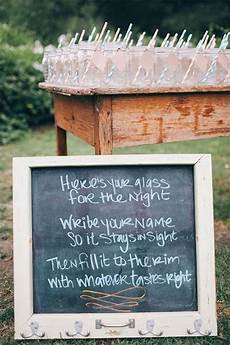 Here's your glass
for the night
Write your name
So it stays in sight
Then fill it to the rim
with whatever tastes right